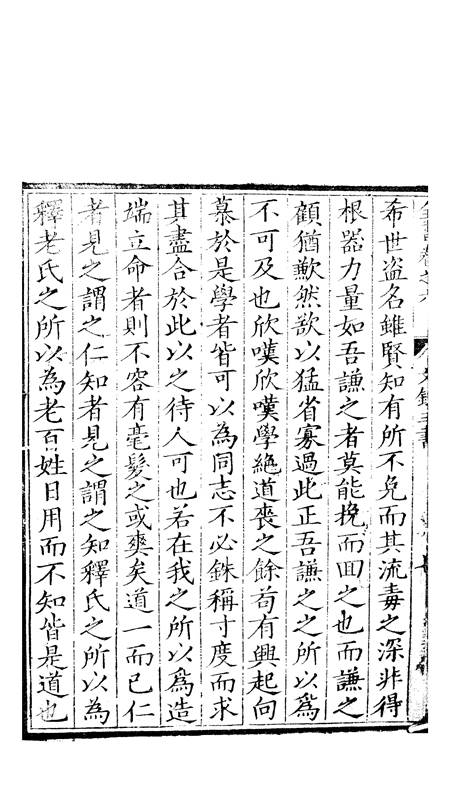 希世盗名雖賢知有所不免而其流毒之深非得
根器力量如吾謙之者莫能挽而回之也而謙之
顧猶歉然欲以猛省寡過此正吾謙之之所以爲
不可及也欣嘆欣嘆學絶道喪之餘苟有興起向
慕於是學者皆可以為同志不必銖稱寸度而求
其盡合於此以之待人可也若在我之所以爲造
端立命者則不容有毫髮之或爽矣道一而已仁
者見之謂之仁知者見之謂之知釋氏之所以為
釋老氏之所以為老百姓日用而不知皆是道也